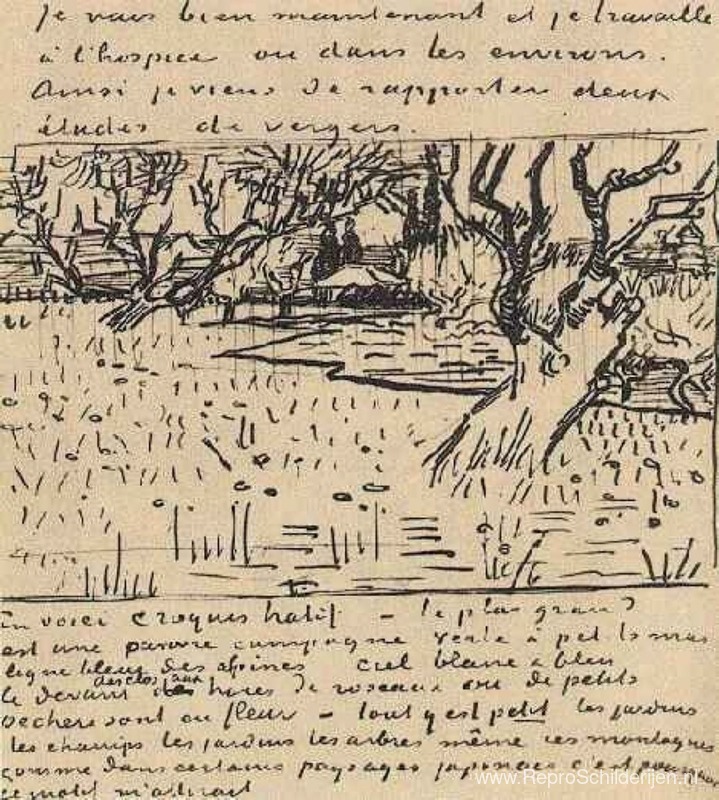 Je vais bien maintenant et je travaille
à l'hospice ou dans les environs.
Ainsi je viens de rapporter deux
études de vergers.
En voici croquis hatif – le plus grand
est une pauvre campagne verte à petits mas
ligne bleue des alpines ciel blanc & bleu
le devant des clos aux haies de roseaux ou de petits
pechers sont en fleur – tout y est petit les jardins
les champs les jardins les arbres même ces montagnes
comme dans certains paysages japonais c'est pourquoi
ce motif m'attirait
www.ReproSchilderijen.nl